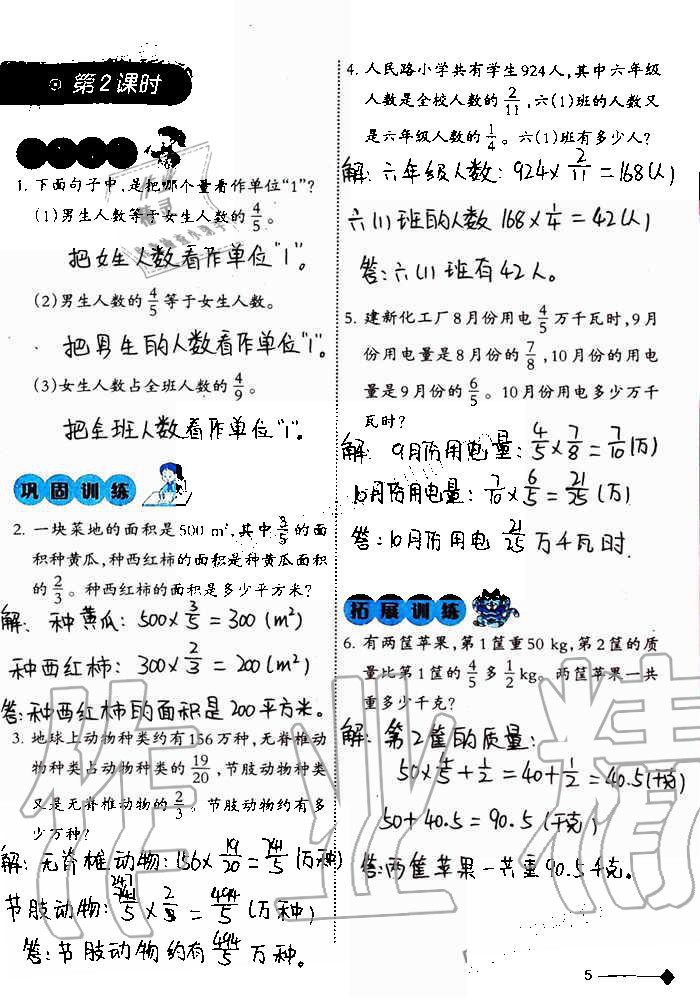 第2课时
1. 下面句子中,是把哪个量看作单位“1”?
(1)男生人数等于女生人数的4/5。
把女生人数看作单位“1”。
(2)男生人数的4/5等于女生人数。
把男生的人数看作单位“1”。
(3)女生人数占全班人数的4/9。
把全班人数看作单位“1”。
巩固训练
2. 一块菜地的面积是500 m²,其中3/5的面
积种黄瓜,种西红柿的面积是种黄瓜面积
的2/3。种西红柿的面积是多少平方米?
解: 种黄瓜: 500×3/5=300(m²)
种西红柿: 300×2/3=200(m²)
答:种西红柿的面积是200平方米。
3. 地球上动物种类约有156万种,无脊椎动
物种类占动物种类的19/20,节肢动物种类
又是无脊椎动物的2/3。节肢动物约有多
少万种?
解: 无脊椎动物: 156×19/20=741/5(万种)
节肢动物: 741/5×2/3=494/5(万种)
答:节肢动物约有494/5万种。
4. 人民路小学共有学生924人,其中六年级
人数是全校人数的2/11,六(1)班的人数又
是六年级人数的1/4。六(1)班有多少人?
解: 六年级人数: 924×2/11=168(人)
六(1)班的人数 168×1/4=42(人)
答:六(1)班有42人。
5. 建新化工厂8月份用电4/5万千瓦时,9月
份用电量是8月份的7/8,10月份的用电
量是9月份的6/5。10月份用电多少万千
瓦时?
解: 9月份用电量: 4/5×7/8=7/10(万)
10月份用电量: 7/10×6/5=21/25(万)
答:10月份用电21/25万千瓦时.
拓展训练
6. 有两筐苹果,第1筐重50 kg,第2筐的质
量比第1筐的4/5多1/2 kg。两筐苹果一共
重多少千克?
解: 第2筐的质量:
50×4/5+1/2=40+1/2=40.5(千克)
50+40.5=90.5(千克)
答:两筐苹果一共重90.5千克。
5
作业精